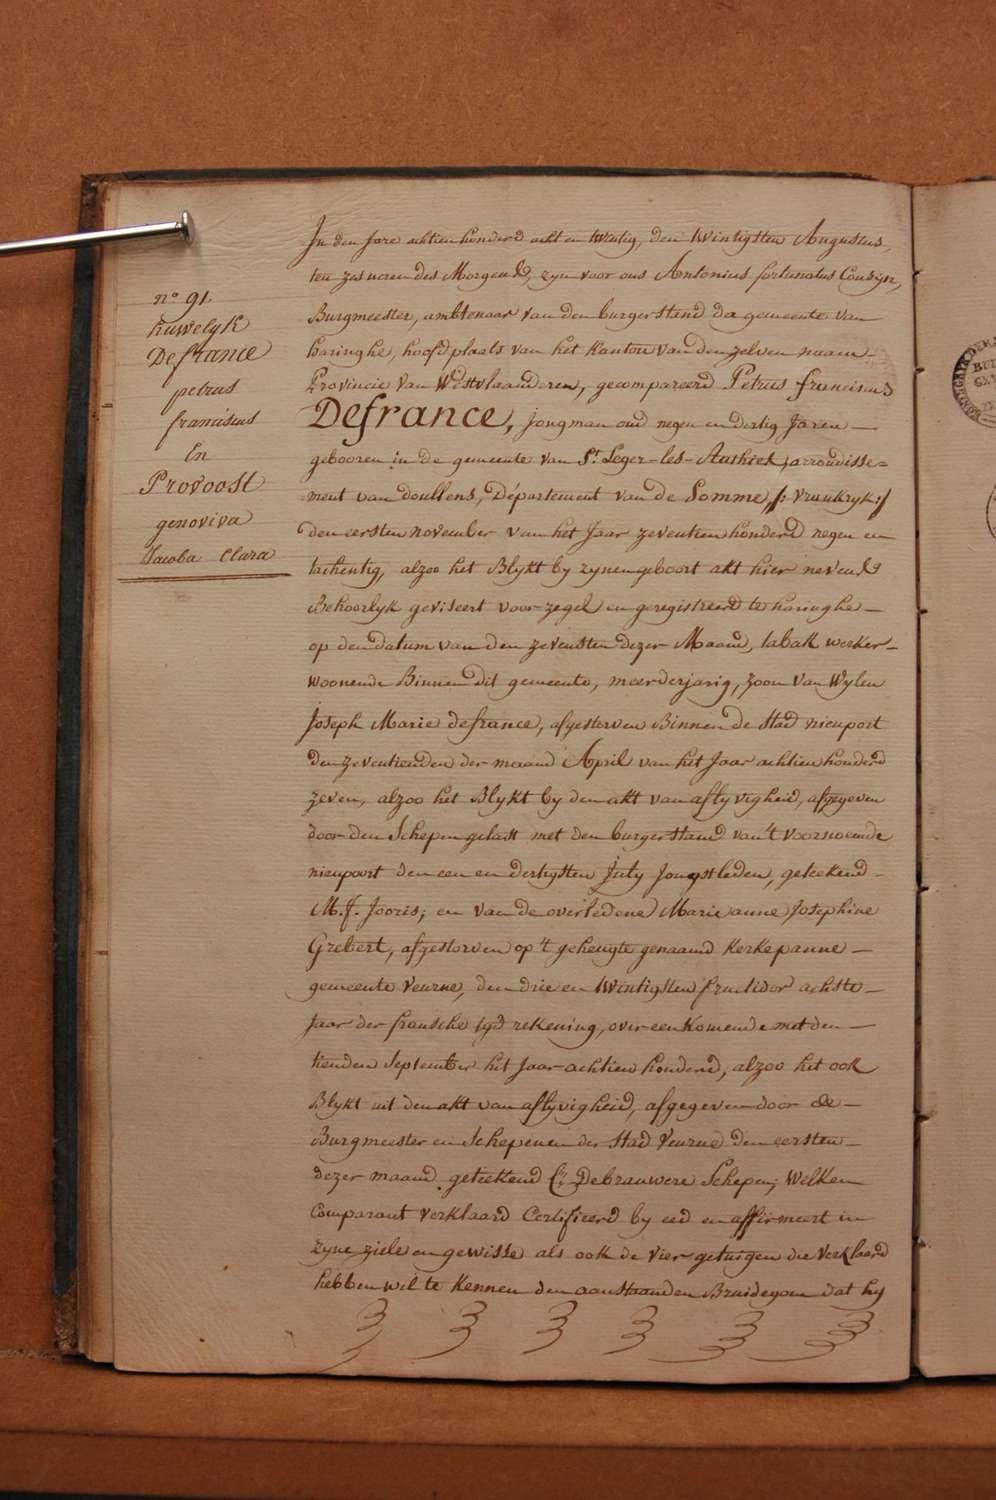 n.° 91.
huwelyk
Defrance
petrus
franciscus
En
Provoost
genoviva
Jacoba Clara
In den Jare achtien honderd acht en twintig, den twintigsten Augustus
ten zes ueren des Morgends, zyn voor ons Antonius fortunatus Cousyn,
Burgmeester, ambtenaar van den burger stand da gemeente van
haringhe, hoofdplaats van het Kanton van den zelven naam
Provincie van Westvlaanderen, gecompareerd Petrus franciscus
Defrance, jongman oud negen en dertig Jaren
gebooren in de gemeente van S.t Leger-les-Authiek, arrondisse=
ment van doullens, Département van de Somme /: vrankryk :/
den eersten november van het Jaar zeventien honderd negen en
tachentig, alzoo het Blykt by zynen geboort akt hier nevens
Behoorlyk geviseert voor zegel en geregistreerd te haringhe
op den datum van den zevensten dezer Maand, tabak werker
woonende Binnen dit gemeente, meerderjarig, zoon van Wylen
Joseph Marie defrance, afgestorven Binnen de Stad nieuport
den zeventienden der maand April van het Jaar achtien honderd
zeven, alzoo het Blykt by den akt van aflyvigheid, afgegeven
door den Schepen gelast met den burger stand van 't voorsnoemde
nieupoort den een en dertigsten July Jongstleden, geteekend
M. J. Jooris; en van de overledene Marie anne Josephine
Grebert, afgestorven op 't gehengte genaamd Kerkepanne
gemeente Veurne, den drie en twintigsten fructidor achtste
Jaar der fransche tyd rekening, over een Komende met den
tienden September het Jaar achtien honderd, alzoo het ook
Blykt uit den akt van aflyvigheid, afgegeven door de
Burgmeester en Schepenen der Stad Veurne den eersten
dezer maand geteekend Debrauwere Schepen; Welken
Comparant verklaard Certifieerd by eed en affirmeert in
zyne ziele en gewisse als ook de vier getuigen die verklaerd
hebben wel te Kennen den aanstaanden Bruidegom dat hy